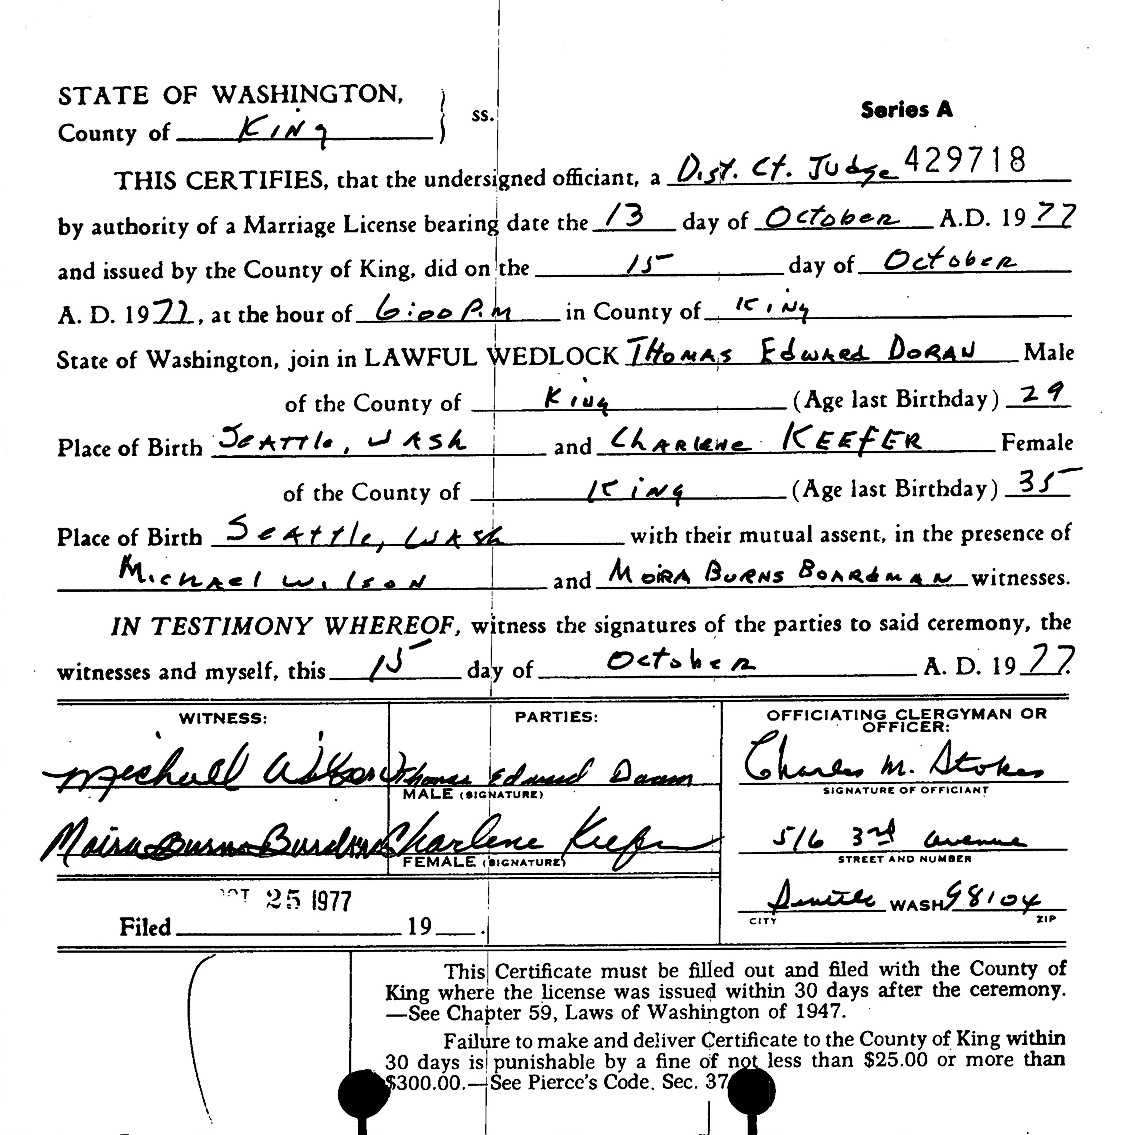 STATE OF WASHINGTON,
County of King } ss.
Series A
THIS CERTIFIES, that the undersigned officiant, a Dist. Ct. Judge 429718
by authority of a Marriage License bearing date the 13 day of October A.D. 1977
and issued by the County of King, did on the 15 day of October
A. D. 1977, at the hour of 6:00 P.M in County of King
State of Washington, join in LAWFUL WEDLOCK THOMAS EDWARD DORAN Male
of the County of King (Age last Birthday) 29
Place of Birth SEATTLE, WASH and CHARLENE KEEFER Female
of the County of King (Age last Birthday) 35
Place of Birth SEATTLE, WASH with their mutual assent, in the presence of
MICHAEL WILSON and MOIRA BURNS BOARDMAN witnesses.
IN TESTIMONY WHEREOF, witness the signatures of the parties to said ceremony, the
witnesses and myself, this 15 day of October A. D. 1977.
WITNESS: PARTIES: OFFICIATING CLERGYMAN OR
OFFICER:
Michael Wilson Thomas Edward Doran Charles M. Stokes
MALE (SIGNATURE) SIGNATURE OF OFFICIANT
Moira Burns Charlene Keefer 516 3rd Avenue
FEMALE (SIGNATURE) STREET AND NUMBER
OCT 25 1977
Seattle WASH 98104
CITY ZIP
Filed 19 .
This Certificate must be filled out and filed with the County of
King where the license was issued within 30 days after the ceremony.
—See Chapter 59, Laws of Washington of 1947.
Failure to make and deliver Certificate to the County of King within
30 days is punishable by a fine of not less than $25.00 or more than
$300.00.—See Pierce's Code. Sec. 37